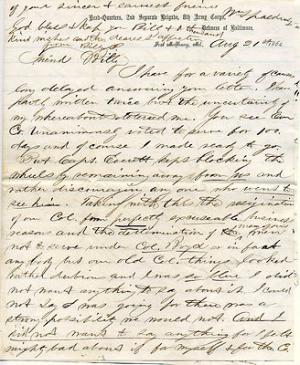 of your sincere & earnest friend
Wm Spaulding
God bless & keep you Billy & a thousand
kind wishes and the dearest of affection
from Billy
Head-Quarters, 2nd Separate Brigade, 8th Army Corps,
Defences of Baltimore,
Fort McHenry, Md., Aug 21st 1864
Friend Willy
I have for a variety of causes
long delayed answering your letter. I have
partly written twice but the uncertainty of
my whereabouts bothered me. You see Our
Co. unanimously voted to serve for 100
days and of course I made ready to go.
But Capt. Everett kept blocking the
wheels by remaining away from us and
rather discouraging any one who went to
see him. Taking with this the resignation
of our Col. from perfectly excuseable business
reasons and the determination of many of our men
not to serve under Col. Boyd in fact
any body but our old Col. things looked
rather dubious and I was so. I did
not want any thing to say about it. I could
not say I was going for there was a
strong possibility we would not. And I
did not want to say anything for I felt
mighty bad about it for myself & for the C.